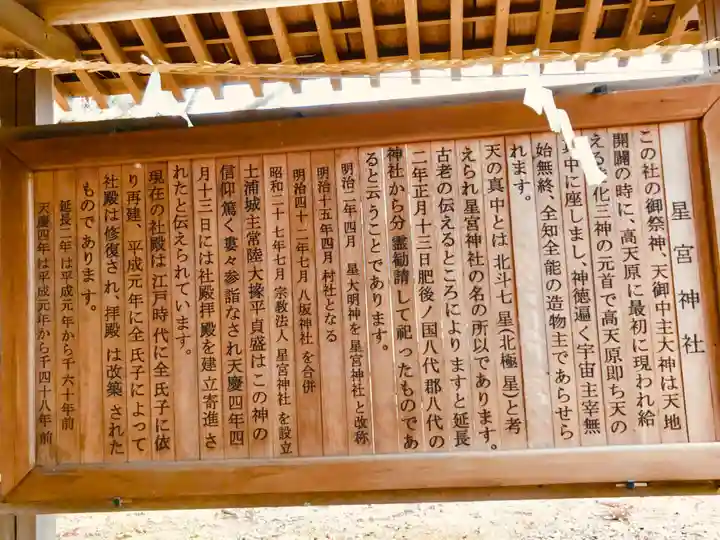 星宮神社
この社の御祭神、天御中主大神は天地
開闢の時に、高天原に最初に現われ給
える造化三神の元首で高天原即ち天の
真中に座しまし、神徳遍く宇宙主宰無
始無終、全知全能の造物主であらせら
れます。
天の真中とは北斗七星(北極星)と考
えられ星宮神社の名の所以であります。
古老の伝えるところによりますと延長
二年正月十三日肥後ノ国八代郡八代の
神社から分霊勧請して祀ったものであ
ると云うことであります。
明治二年四月 星大明神を星宮神社と改称
明治十五年四月村社となる
明治四十二年七月八坂神社を合併
昭和二十七年七月宗教法人星宮神社を設立
土浦城主常陸大掾平貞盛はこの神の
信仰篤く婁々参詣なされ天慶四年四
月十三日には社殿拝殿を建立寄進さ
れたと伝えられています。
現在の社殿は江戸時代に全氏子に依
り再建、平成元年に全氏子によって
社殿は修復され、拝殿は改築された
ものであります。
延長二年は平成元年から千六十年前
天慶四年は平成元年から千四十八年前